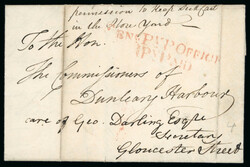 permission to keep
in the Stone Yard
PENY POST OFFICE
To the Hon.
The Commissioners of
Dunleary Harbour
care of Geo. Darling Esqre
Secretary
Gloucester Street